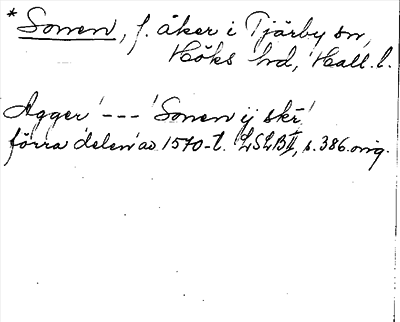 * Sonen, f. åker i Tjärby sn,
Höks hd, Hall. l.
Agger' --- 'Sonen ij skr'
förra delen av 1570-t. LSLB II, s. 386 orig.